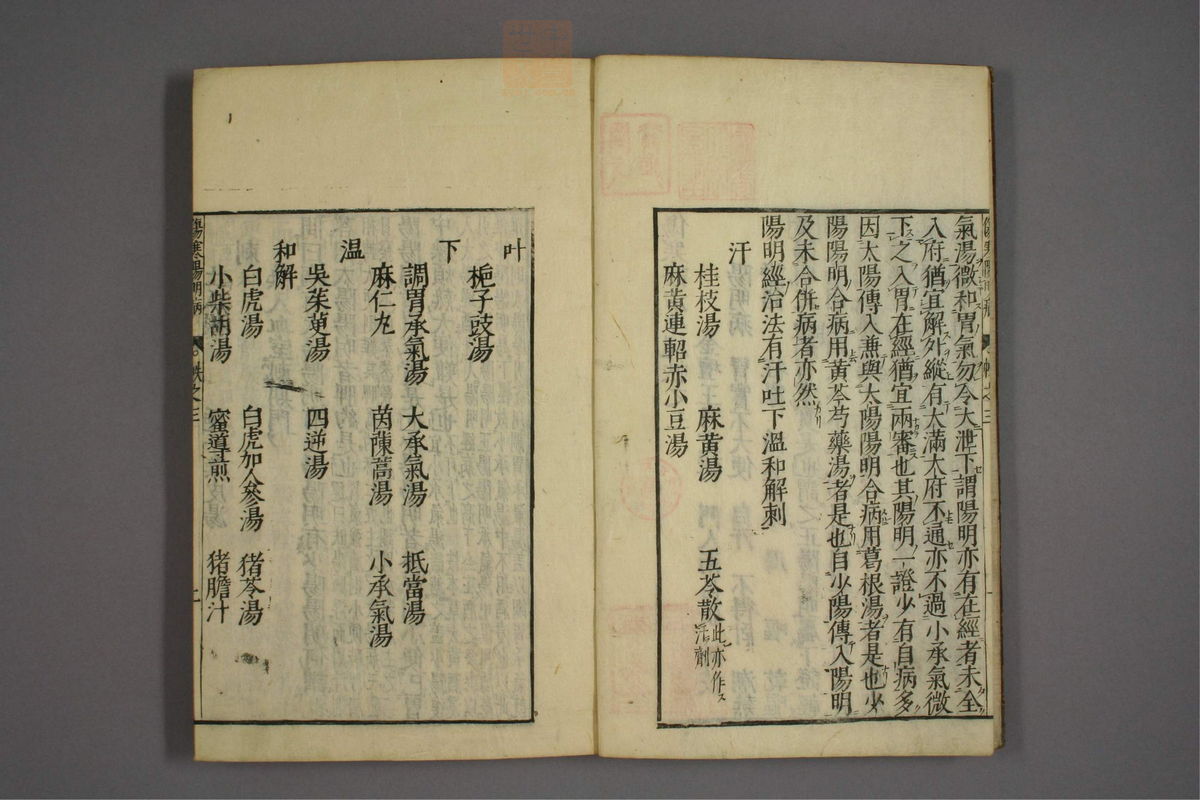 氣湯微和胃氣勿令大泄下謂陽明亦有在經者未全
入府猶宜解外縱有大滿大府不通亦不過小承氣微
下之入胃在經猶宜兩審也其陽明一證少有自病多
因太陽傳入兼與太陽陽明合病用葛根湯者是也少
陽陽明合病用黃芩芍藥湯者是也自少陽傳入陽明
及未合併病者亦然
陽明經治法有汗吐下溫和解刺
汗
桂枝湯 麻黃湯 五苓散此亦作汗劑
麻黃連軺赤小豆湯
傷寒陽明病 帙之三
吐
梔子豉湯
下
調胃承氣湯 大承氣湯 抵當湯
麻仁丸 茵蔯蒿湯 小承氣湯
溫
吳茱萸湯 四逆湯
和解
白虎湯 白虎加人參湯 猪苓湯
小柴胡湯 蜜導煎 猪膽汁
傷寒陽明病 帙之三 二